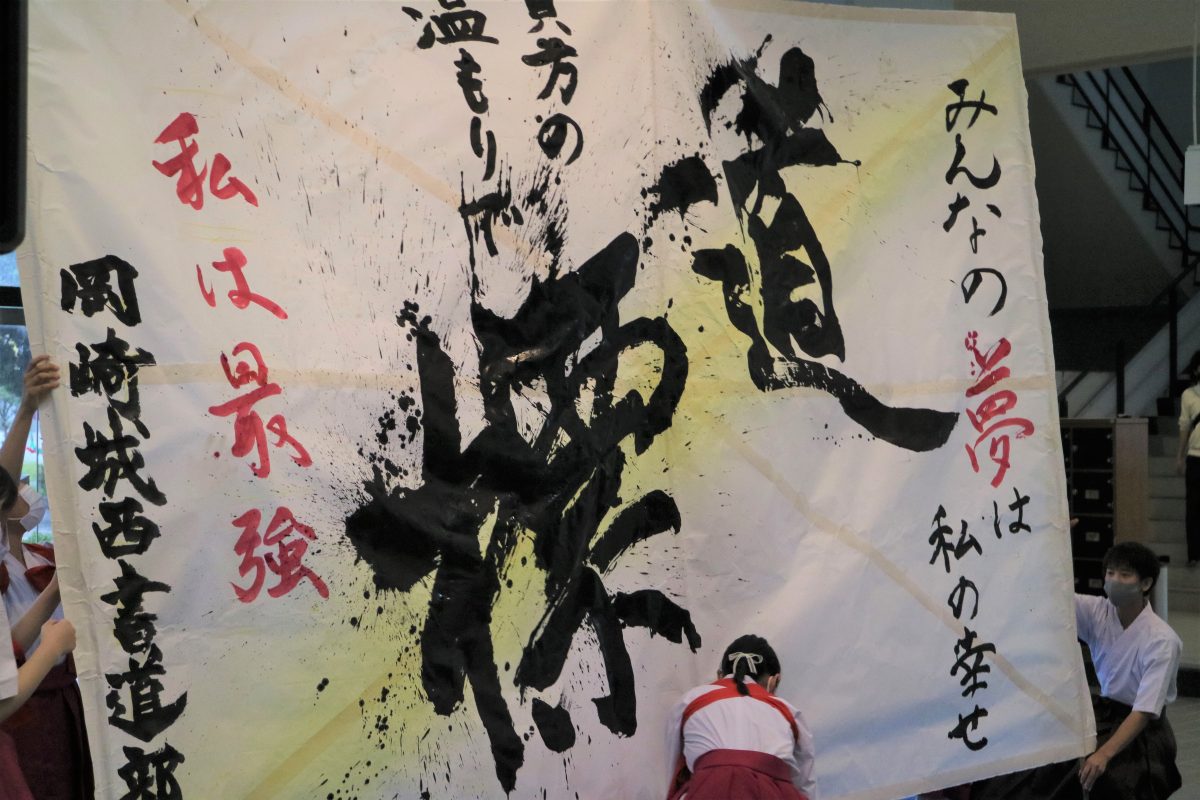 みんなの夢は
私の幸せ
道標
貴方の
温もりで
私は最強
岡崎城西書道部